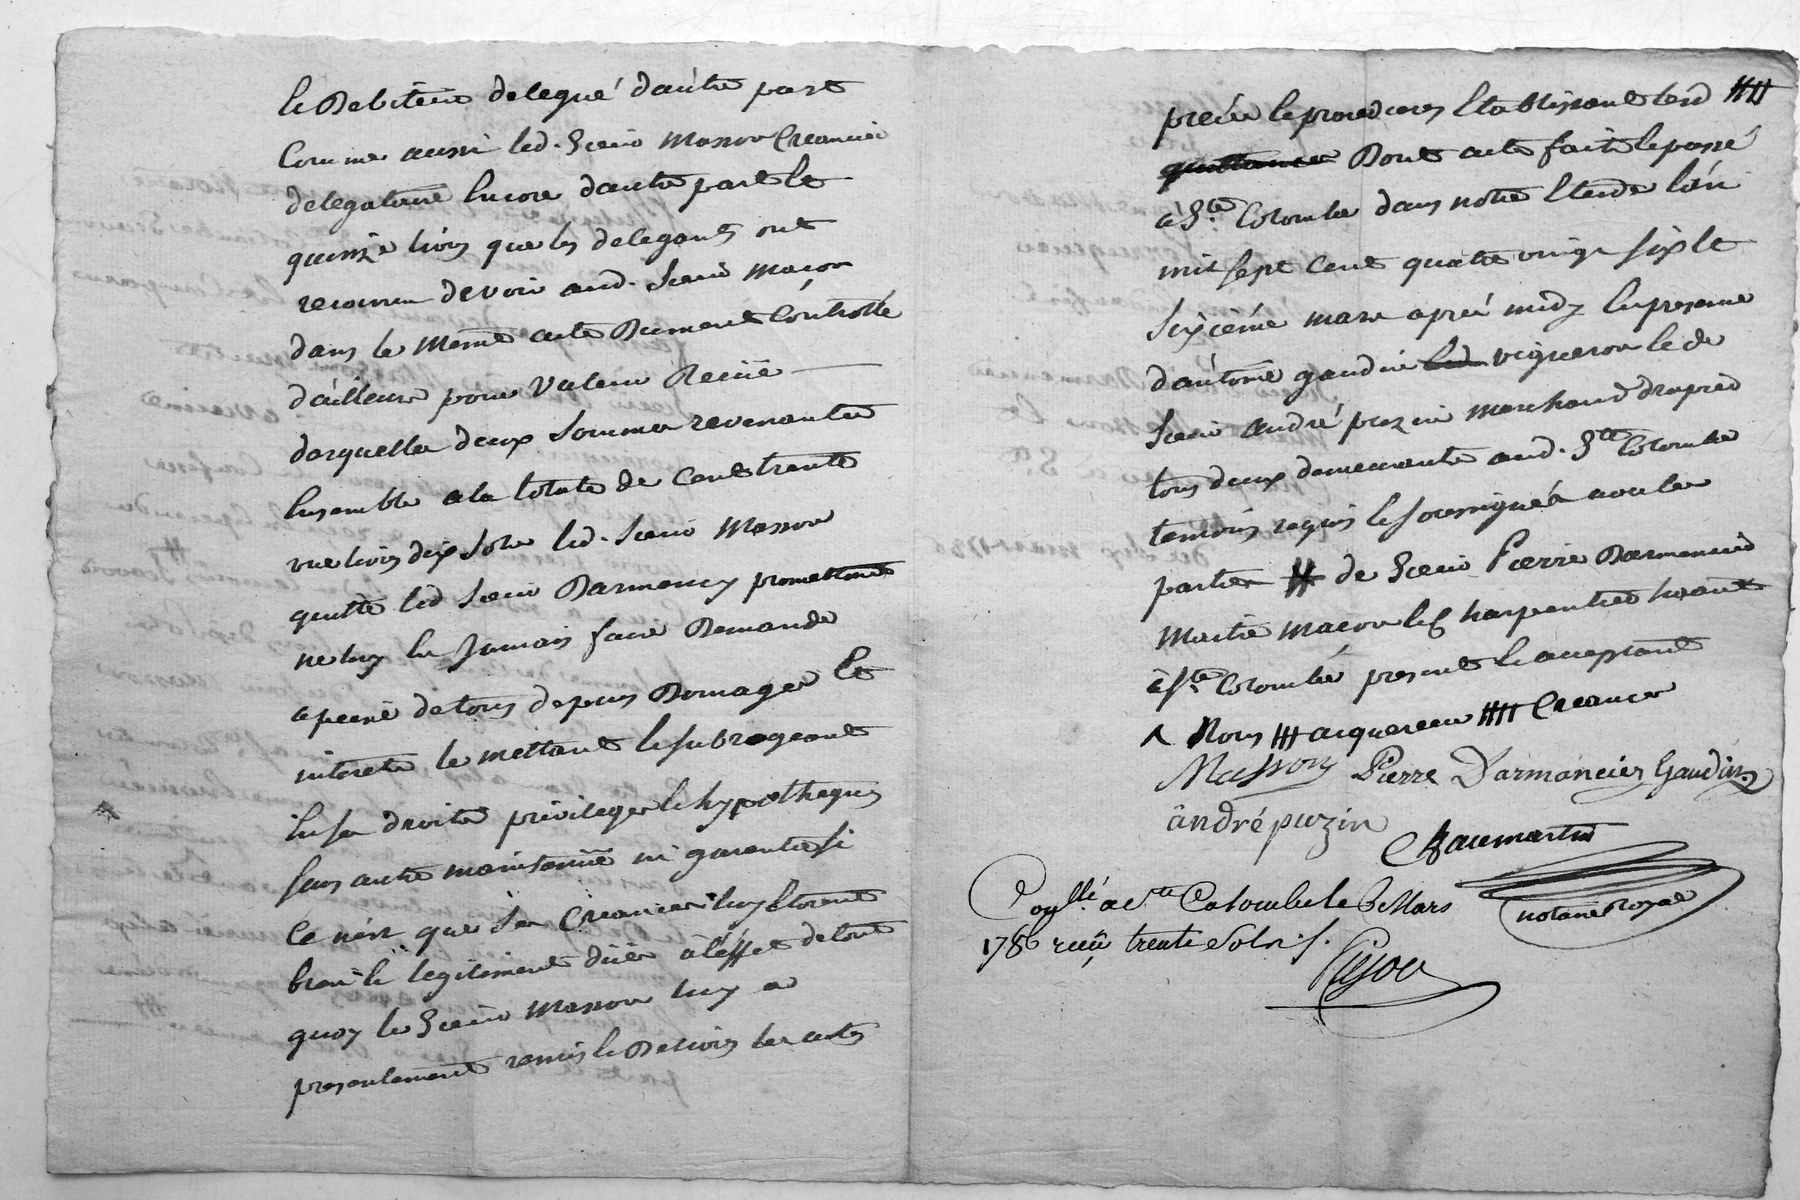 le Debiteur delegué d'autre part
Comme aussi led. Sieur Masson Creancier
delegataire Encore d'autre part Et
quinze livres que les delegants ont
reconnu devoir aud. Sieur Macon
dans le meme acte Dument Controllé
d'ailleurs pour valeur Reçüe
desquelles deux sommes revenantes
Ensemble a la totale de Cent trente
une livres dix sols led. Sieur Masson
quitte led Sieur Darmency promettant
ne luy En Jamais faire Demande
a peine de tous depens Domages Et
interets le mettant Et subrogeant
En ses droits privileges Et hypotheques
sans autre maintenüe ni garentie si
Ce n'est que ses Creances luy Etoient
bien Et legitiment düés à l'éffet de tout
quoy le Sieur Masson luy a
presentement remis Et Delivré les actes
precés Et procedures Etablissant lesd
quittances Dont acte fait Et passé
à Ste. Colombe dans notre Etude l'an
mil sept cent quatre vingt six Et
sixiéme mars aprés midy En presence
d'antoine gaudin led vigneron Et de
Sieur andré puzin marchand drapier
tous deux demeurants aud. Ste Colombe
temoins requis Et soussignés avec les
parties de Sieur Pierre Darmencier
Maitre macon Et Charpentier vivant
à Ste. Colombe present Et acceptant
Nous acquereur Creances
Masson Pierre Darmancier Gaudin
andré puzin
notaire Royal
Conllé. a Ste Colombe le 6 Mars
1786 reçu trente Sols